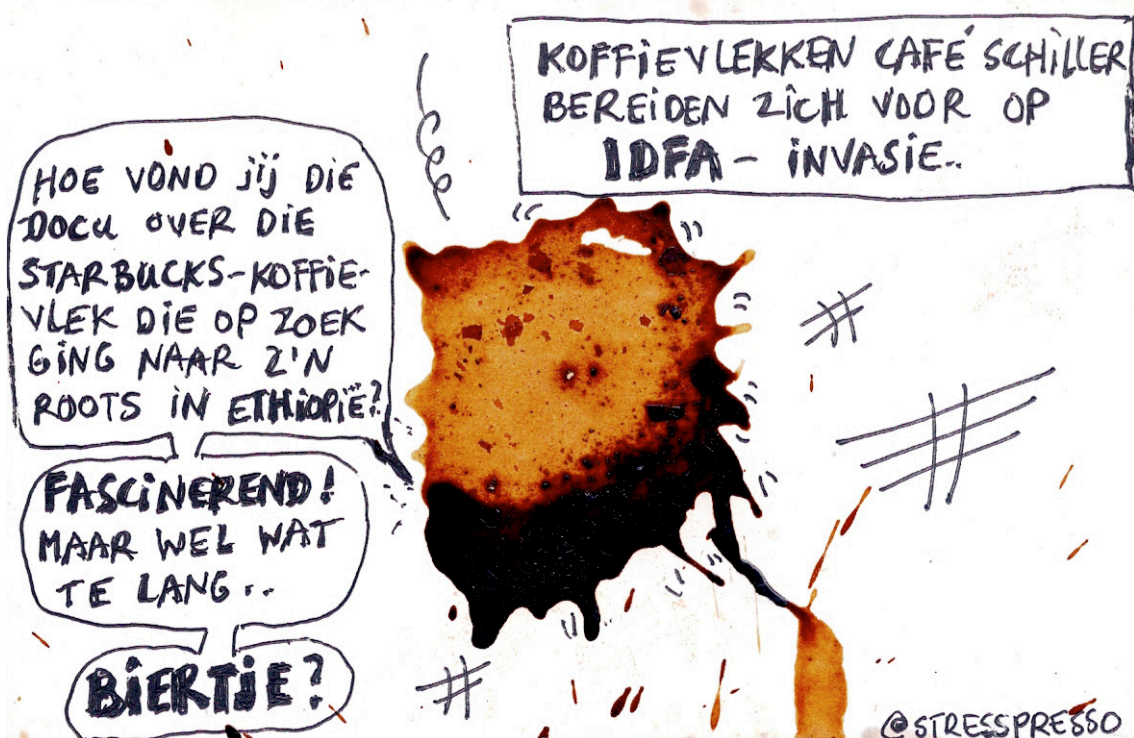 KOFFIEVLEKKEN CAFÉ SCHILLER
BEREIDEN ZICH VOOR OP
IDFA - INVASIE..
HOE VOND JIJ DIE
DOCU OVER DIE
STARBUCKS-KOFFIE-
VLEK DIE OP ZOEK
GING NAAR Z'N
ROOTS IN ETHIOPIË?
FASCINEREND!
MAAR WEL WAT
TE LANG..
BIERTJE?
@STRESSPRESSO